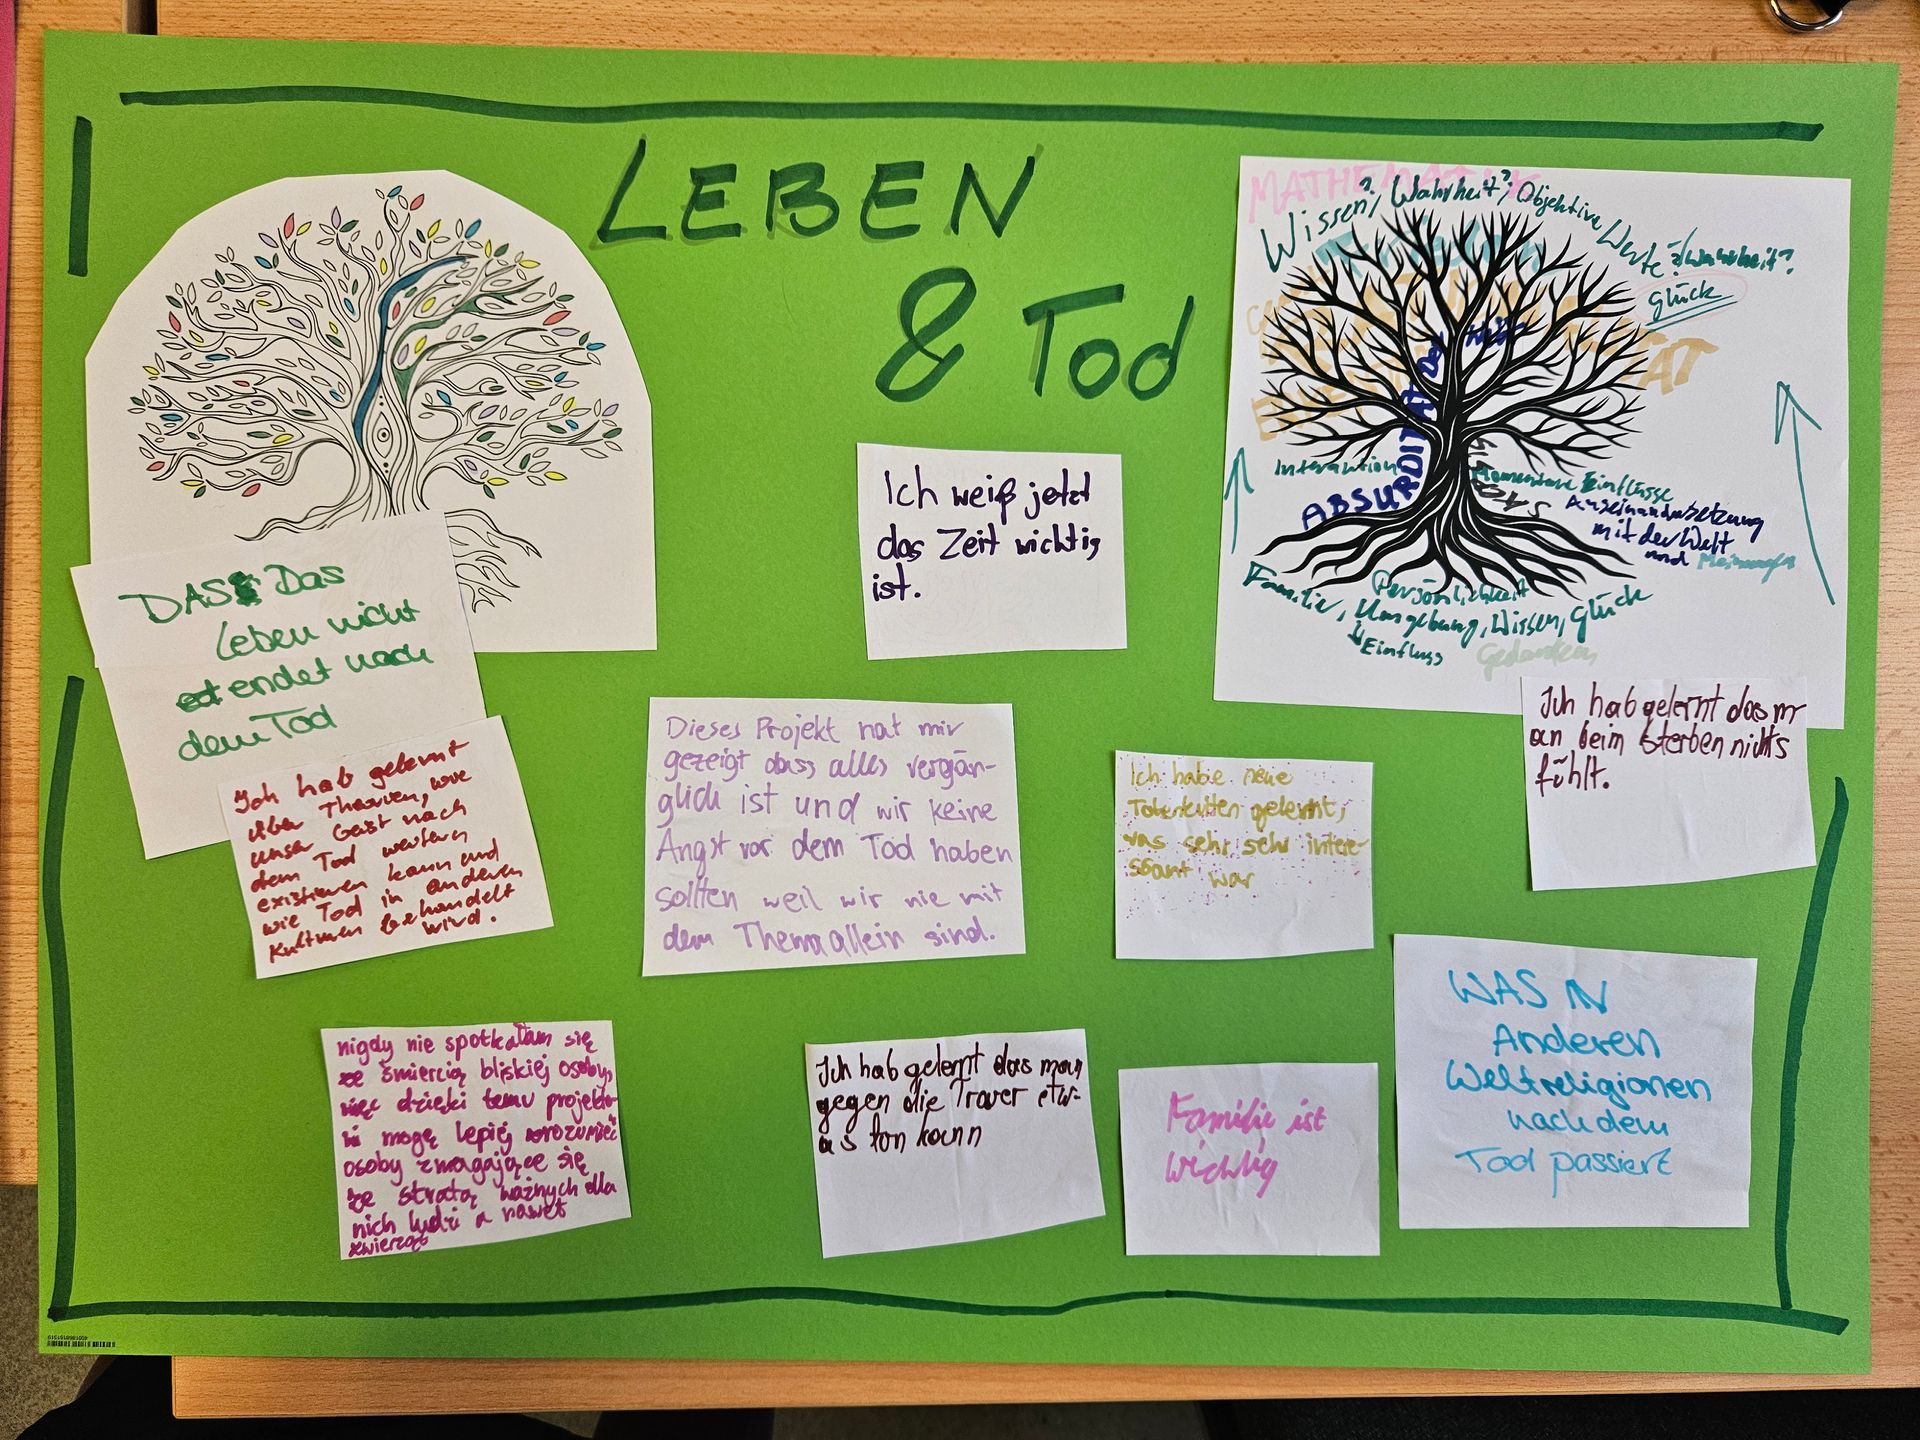 LEBEN
& Tod
MATHEMATIK
Wissen?, Wahrheit?, Objektive Werte/Wahrheit?
Glück
ABSURDITÄT der
Interaktion
Momentane Einflüsse
Auseinandersetzung
mit der Welt
und Meinungen
Persönlichkeit
Familie, Umgebung, Wissen, Glück
↳ Einfluss
Gedanken
DAS Das
Leben nicht
endet nach
dem Tod
Ich hab gelernt
über Theorien, wie
unser Geist nach
dem Tod weitern
existieren kann und
wie Tod in anderen
Kulturen behandelt
wird.
Ich weiß jetzt
das Zeit wichtig
ist.
Dieses Projekt hat mir
gezeigt dass alles vergän-
glich ist und wir keine
Angst vor dem Tod haben
sollten weil wir nie mit
dem Thema allein sind.
Ich habe neue
gelernt,
was sehr sehr intere-
ssant war
Ich hab gelernt das m
an beim sterben nichts
fühlt.
nigdy nie spotkałam się
ze śmiercią bliskiej osoby,
więc dzięki temu projekto-
wi mogę lepiej zrozumieć
osoby zmagające się
ze stratą ważnych dla
nich ludzi a nawet
zwierząt
Ich hab gelernt das man
gegen die Trauer etw-
as ton kann
Familie ist
wichtig
WAS IN
Anderen
Weltreligionen
nach dem
Tod passiert